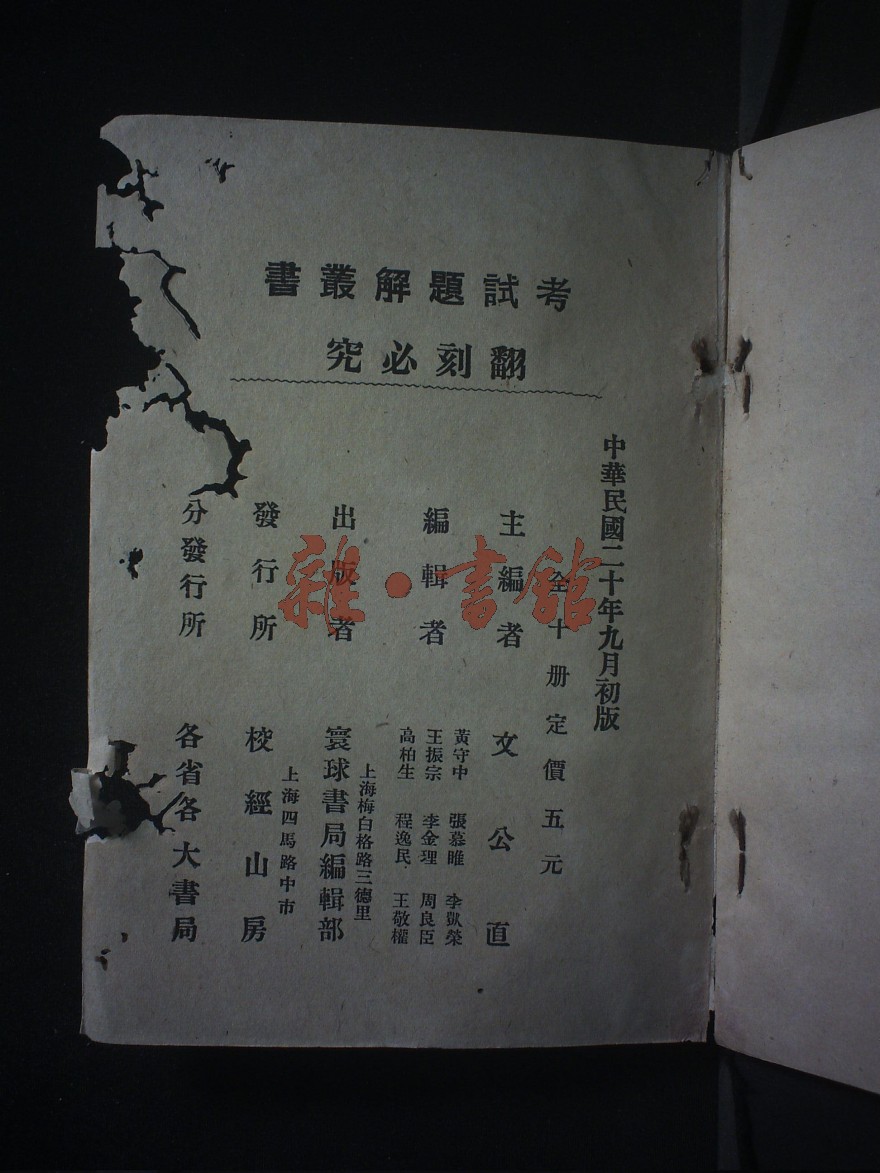 考試題解叢書
翻刻必究
中華民國二十年九月初版
全十册定價五元
主編者 文公直
編輯者
黃守中 張慕睢 李獃榮
王振宗 李金理 周良臣
高柏生 程逸民 王敬權
出版者
上海梅白格路三德里
寰球書局編輯部
發行所
上海四馬路中市
校經山房
分發行所 各省各大書局
雜·書館